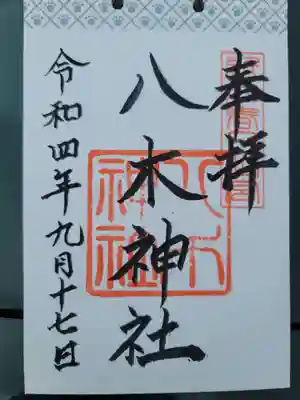 奉拝
八木神社
令和四年九月十七日
八木
神社